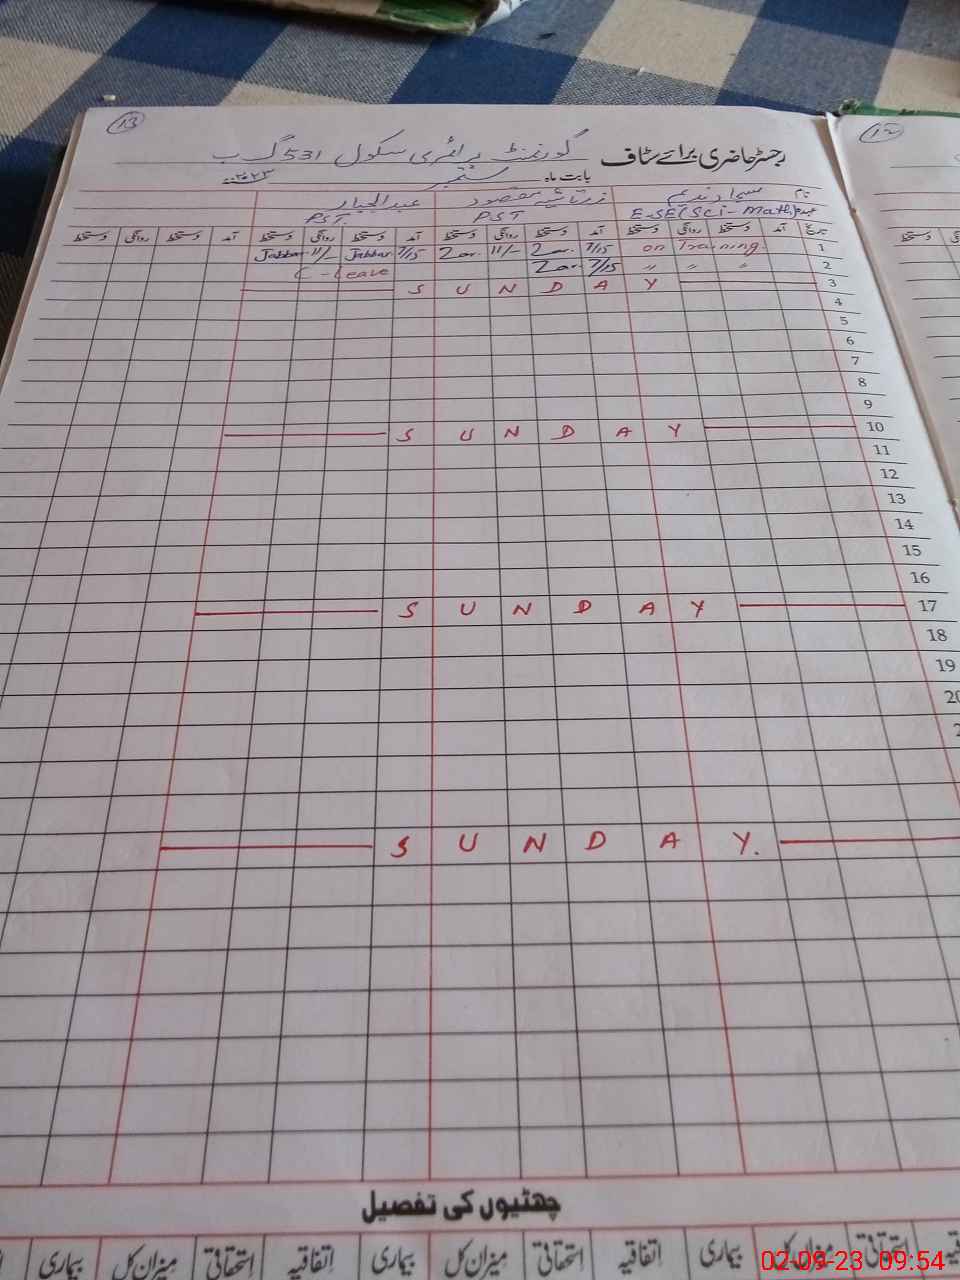 13
12
رجسٹر حاضری برائے سٹاف گورنمنٹ پرائمری سکول 531 گ ب
بابت ماہ ستمبر ۲۰۲۳
نام عبدالجبار
E-SE (Sci-Math) PST PST
تاریخ آمد دستخط روانگی دستخط آمد دستخط روانگی دستخط آمد دستخط روانگی دستخط آمد دستخط روانگی دستخط
1 on Training 7/15 Zar 11/- Zar 7/15 Jabbar 11/- Jabbar
2 〃 〃 〃 7/15 Zar C-Leave
3 SUNDAY
4
5
6
7
8
9
10 SUNDAY
11
12
13
14
15
16
17 SUNDAY
18
19
20
2
SUNDAY.
چھٹیوں کی تفصیل
اتفاقیہ استحقاقی میزان کل بیماری اتفاقیہ استحقاقی میزان کل بیماری اتفاقیہ استحقاقی میزان کل بیماری
02-09-23 09:54